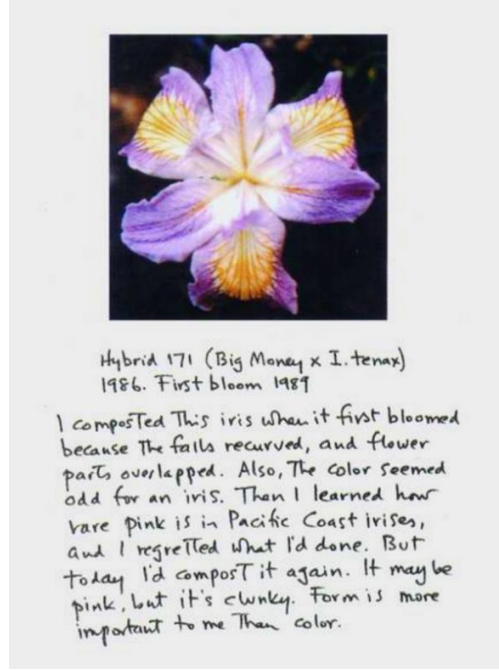 Hybrid 171 (Big Money x I. tenax)
1986. First bloom 1989
I composted This iris when it first bloomed
because The falls recurved, and flower
parts overlapped. Also, The color seemed
odd for an iris. Then I learned how
rare pink is in Pacific Coast irises,
and I regretted what I'd done. But
today I'd compost it again. It may be
pink, but it's clunky. Form is more
important to me Than color.